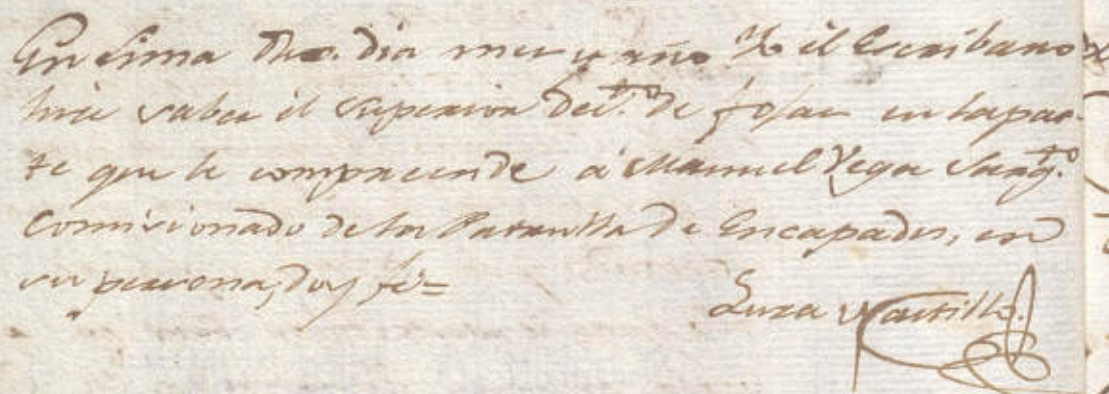 En Lima dho. dia mes y año Yo el Escribano
hice saber el Superior Dec.to de fojas en la par-
te que le comprende á Manuel Vega Sarg.to
Comisionado de la Patrulla de Encapados, en
su persona, doy fé=
Luza y Castillo.